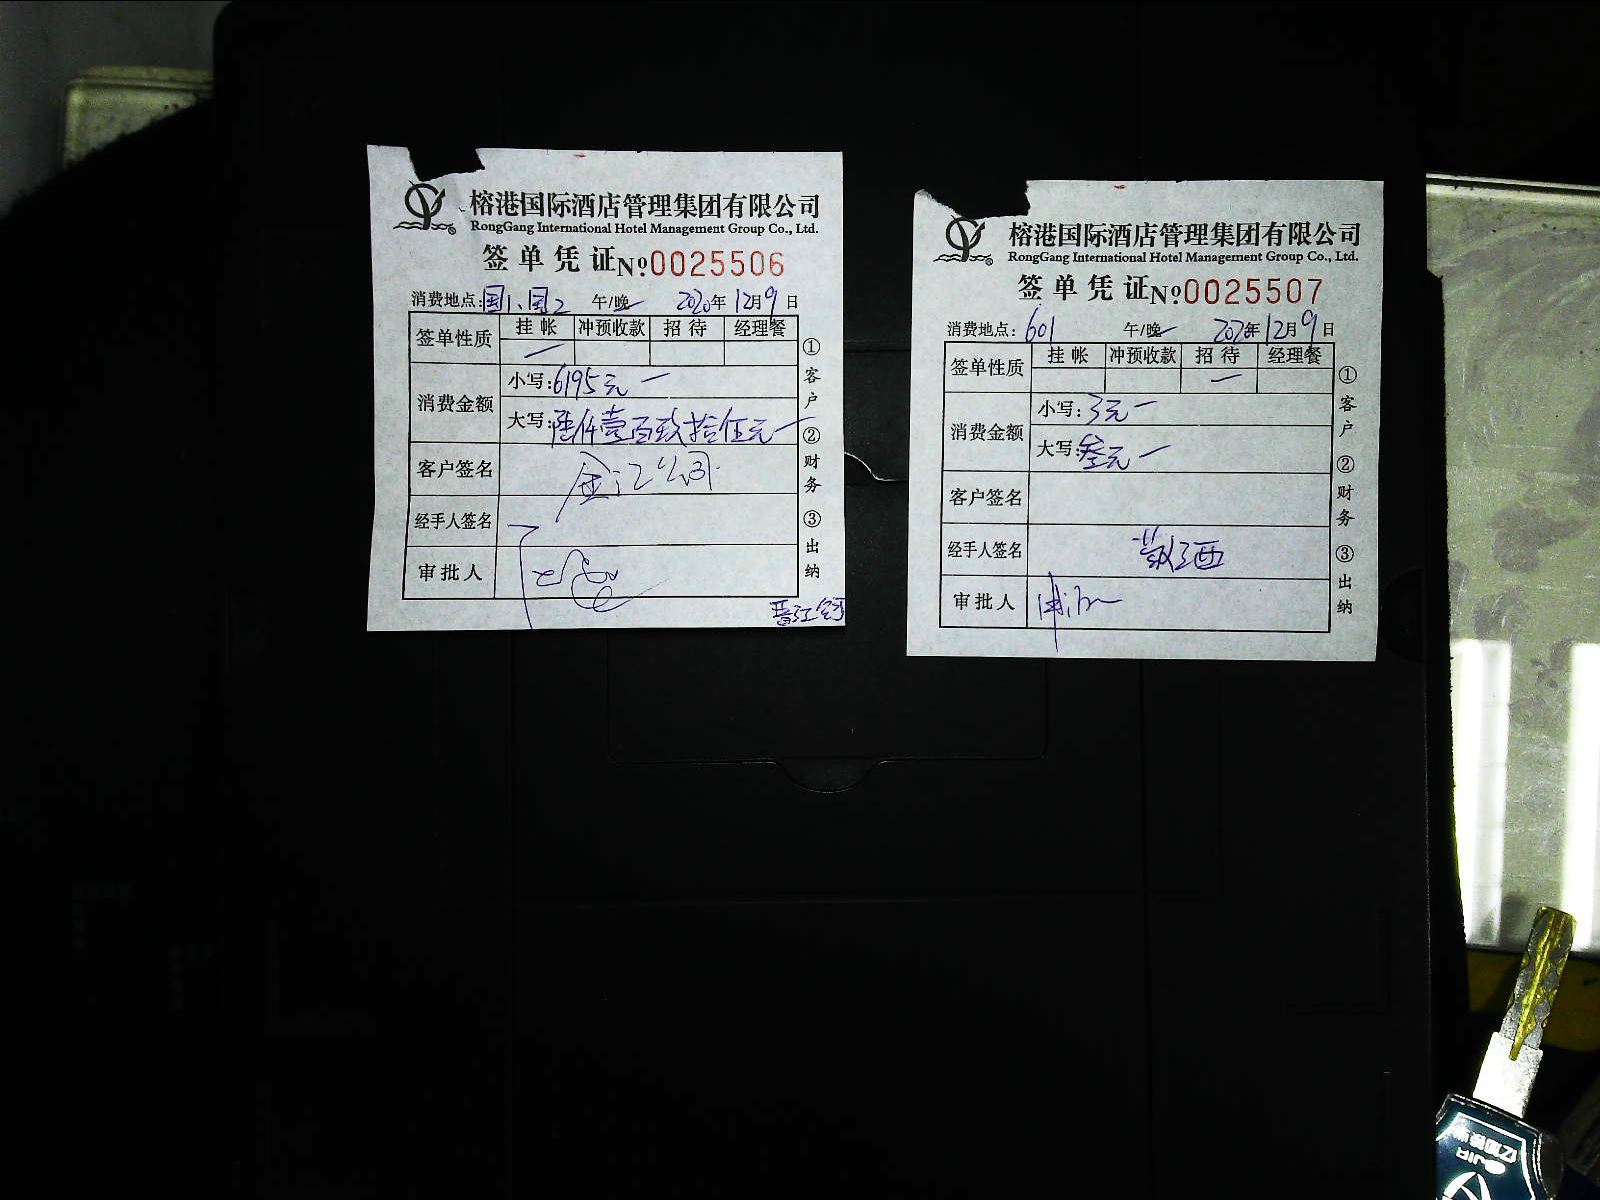 榕港国际酒店管理集团有限公司
RongGang International Hotel Management Group Co., Ltd.
签单凭证 №0025506
消费地点:国1、国2 午/晚 2020年12月9日
签单性质 挂帐 冲预收款 招待 经理餐
消费金额
小写:6195元
大写:陆仟壹百玖拾伍元
客户签名 金汇公司
经手人签名
审批人
晋江
①客户 ②财务 ③出纳
榕港国际酒店管理集团有限公司
RongGang International Hotel Management Group Co., Ltd.
签单凭证 №0025507
消费地点:601 午/晚 2020年12月9日
签单性质 挂帐 冲预收款 招待 经理餐
消费金额
小写:3元
大写:叁元
客户签名
经手人签名
审批人
①客户 ②财务 ③出纳